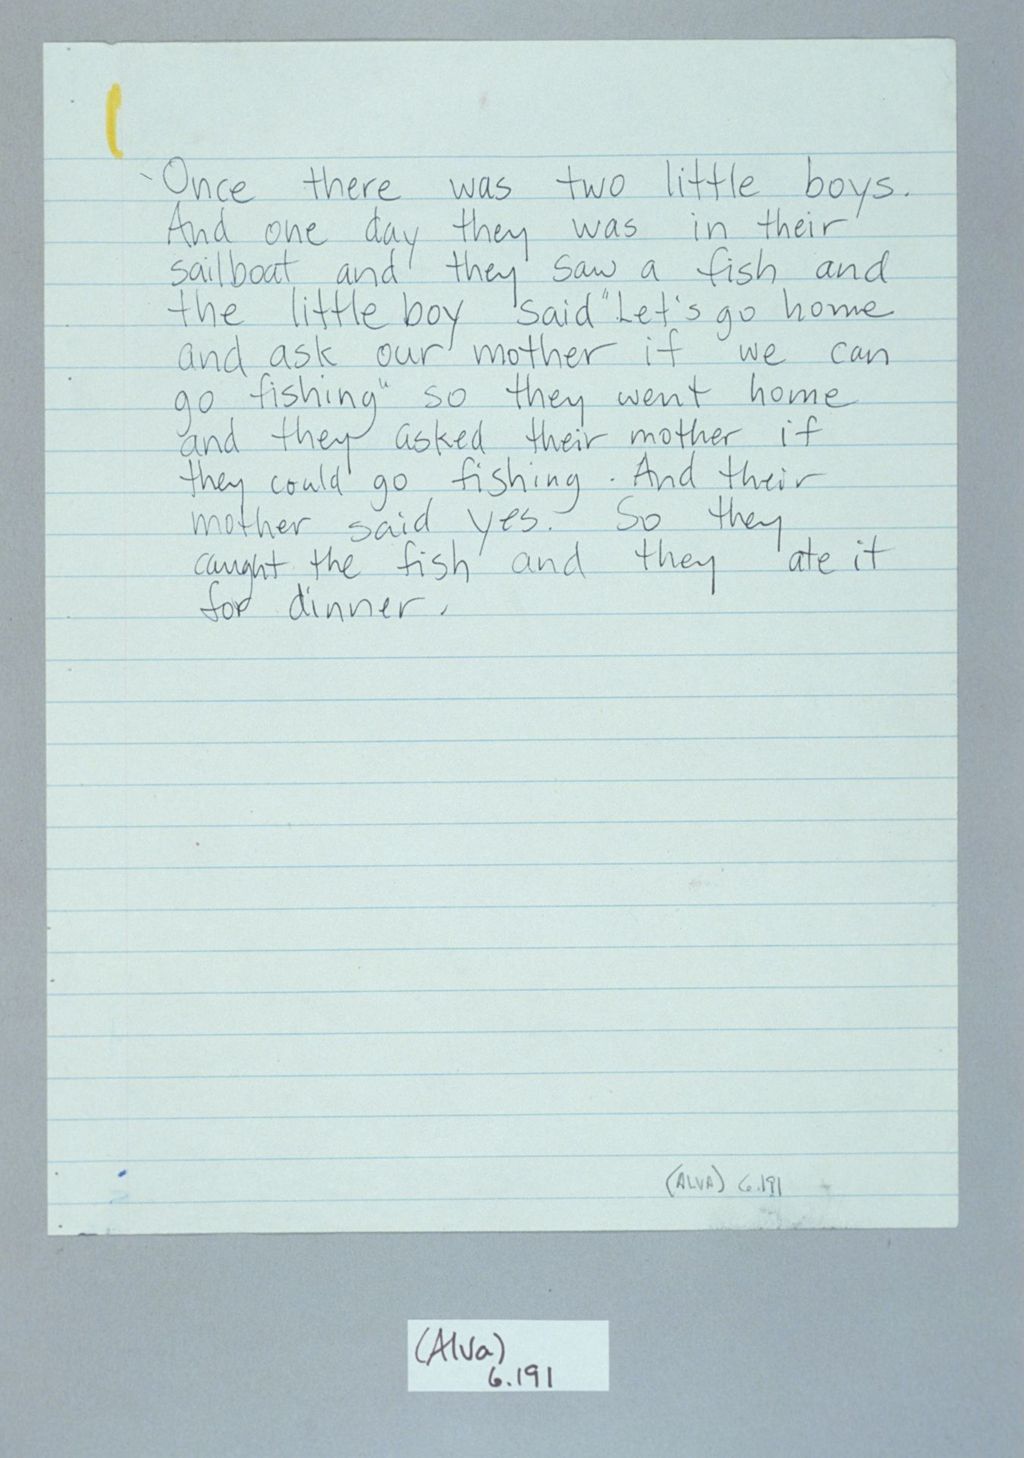 Once there was two little boys.
And one day they was in their
sailboat and they saw a fish and
the little boy said "Let's go home
and ask our mother if we can
go fishing" so they went home
and they asked their mother if
they could go fishing. And their
mother said yes. So they
caught the fish and they ate it
for dinner.
(ALVA) 6.191
(Alva)
6.191